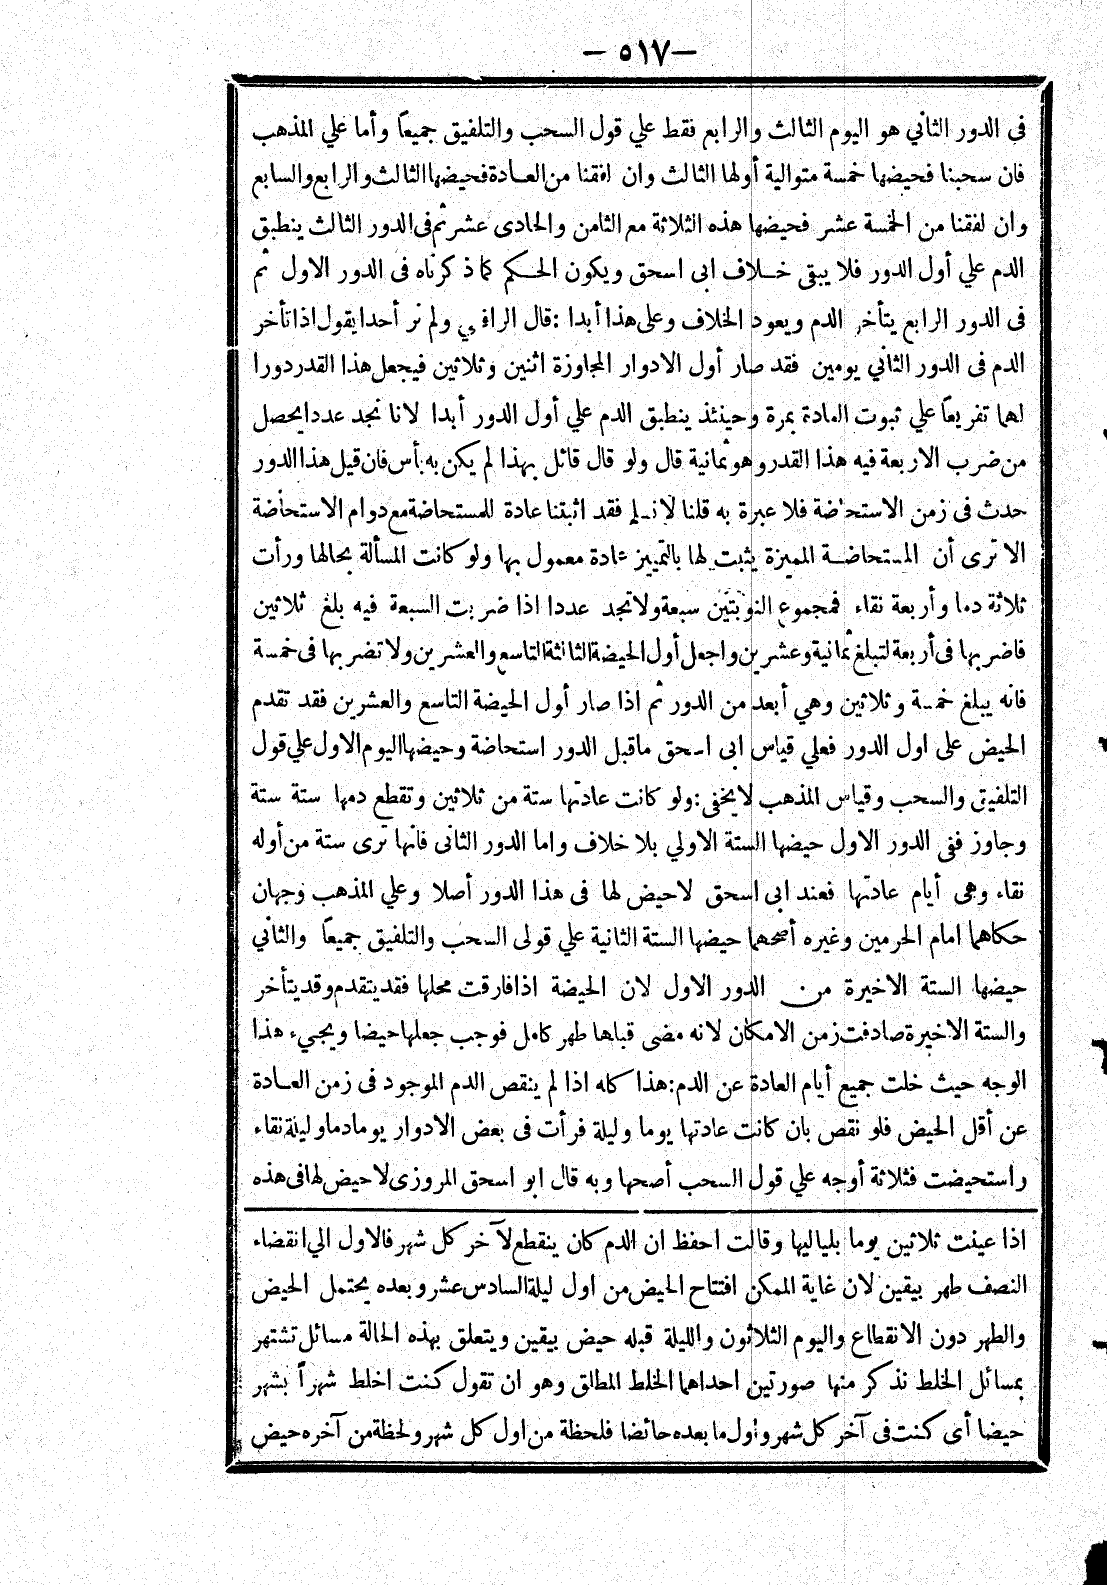 — ٥١٧ —
فى الدور الثاني هو اليوم الثالث والرابع فقط علي قول السحب والتلفيق جميعاً وأما علي المذهب
فان سحبنا فحيضها خمسة متوالية أولها الثالث وان لفقنا من العادة فحيضها الثالث والرابع والسابع
وان لفقنا من الخمسة عشر فحيضها هذه الثلاثة مع الثامن والحادى عشر ثم فى الدور الثالث ينطبق
الدم علي أول الدور فلا يبقى خلاف ابى اسحق ويكون الحكم كما ذكرناه فى الدور الاول ثم
فى الدور الرابع يتأخر الدم ويعود الخلاف وعلى هذا أبدا : قال الرافعي ولم نر أحدا يقول اذا تأخر
الدم فى الدور الثاني يومين فقد صار أول الادوار المجاوزة اثنين وثلاثين فيجعل هذا القدر دورا
لها تفريعاً علي ثبوت العادة بمرة وحينئذ ينطبق الدم علي أول الدور أبدا لانا نجد عددا يحصل
من ضرب الاربعة فيه هذا القدر وهو ثمانية قال ولو قال قائل بهذا لم يكن به بأس فان قيل هذا الدور
حدث فى زمن الاستحاضة فلا عبرة به قلنا لا نسلم فقد اثبتنا عادة للمستحاضة مع دوام الاستحاضة
الا ترى أن المستحاضة المميزة يثبت لها بالتمييز عادة معمول بها ولو كانت المسألة بحالها ورأت
ثلاثة دما وأربعة نقاء فمجموع النوبتين سبعة ولا تجد عددا اذا ضربت السبعة فيه بلغ ثلاثين
فاضربها فى أربعة لتبلغ ثمانية وعشرين واجعل أول الحيضة الثانية التاسع والعشرين ولا تضربها فى خمسة
فانه يبلغ خمسة وثلاثين وهي أبعد من الدور ثم اذا صار أول الحيضة التاسع والعشرين فقد تقدم
الحيض على اول الدور فعلي قياس ابى اسحق ماقبل الدور استحاضة وحيضها اليوم الاول علي قول
التلفيق والسحب وقياس المذهب لا يخفى : ولو كانت عادتها ستة من ثلاثين وتقطع دمها ستة ستة
وجاوز ففى الدور الاول حيضها الستة الاولي بلا خلاف واما الدور الثانى فانها ترى ستة من أوله
نقاء وهى أيام عادتها فعند ابى اسحق لاحيض لها فى هذا الدور أصلا وعلي المذهب وجهان
حكاهما امام الحرمين وغيره أصحهما حيضها الستة الثانية علي قولى السحب والتلفيق جميعاً والثاني
حيضها الستة الاخيرة من الدور الاول لان الحيضة اذا فارقت محلها فقد يتقدم وقد يتأخر
والستة الاخيرة صادفت زمن الامكان لانه مضى قبلها طهر كامل فوجب جعلها حيضا ويجيء هذا
الوجه حيث خلت جميع أيام العادة عن الدم : هذا كله اذا لم ينقص الدم الموجود فى زمن العادة
عن أقل الحيض فلو نقص بان كانت عادتها يوما وليلة فرأت فى بعض الادوار يوما دما وليلة نقاء
واستحيضت فثلاثة أوجه علي قول السحب أصحها وبه قال ابو اسحق المروزى لاحيض لها فى هذه
اذا عينت ثلاثين يوما بلياليها وقالت احفظ ان الدم كان ينقطع لآخر كل شهر فالاول الي انقضاء
النصف طهر بيقين لان غاية الممكن افتتاح الحيض من اول ليلة السادس عشر وبعده يحتمل الحيض
والطهر دون الانقطاع واليوم الثلاثون والليلة قبله حيض بيقين ويتعلق بهذه الحالة مسائل تشتهر
بمسائل الخلط نذكر منها صورتين احداهما الخلط المطلق وهو ان تقول كنت اخلط شهراً بشهر
حيضا أى كنت فى آخر كل شهر وأول ما بعده حائضا فلحظة من اول كل شهر ولحظة من آخره حيض